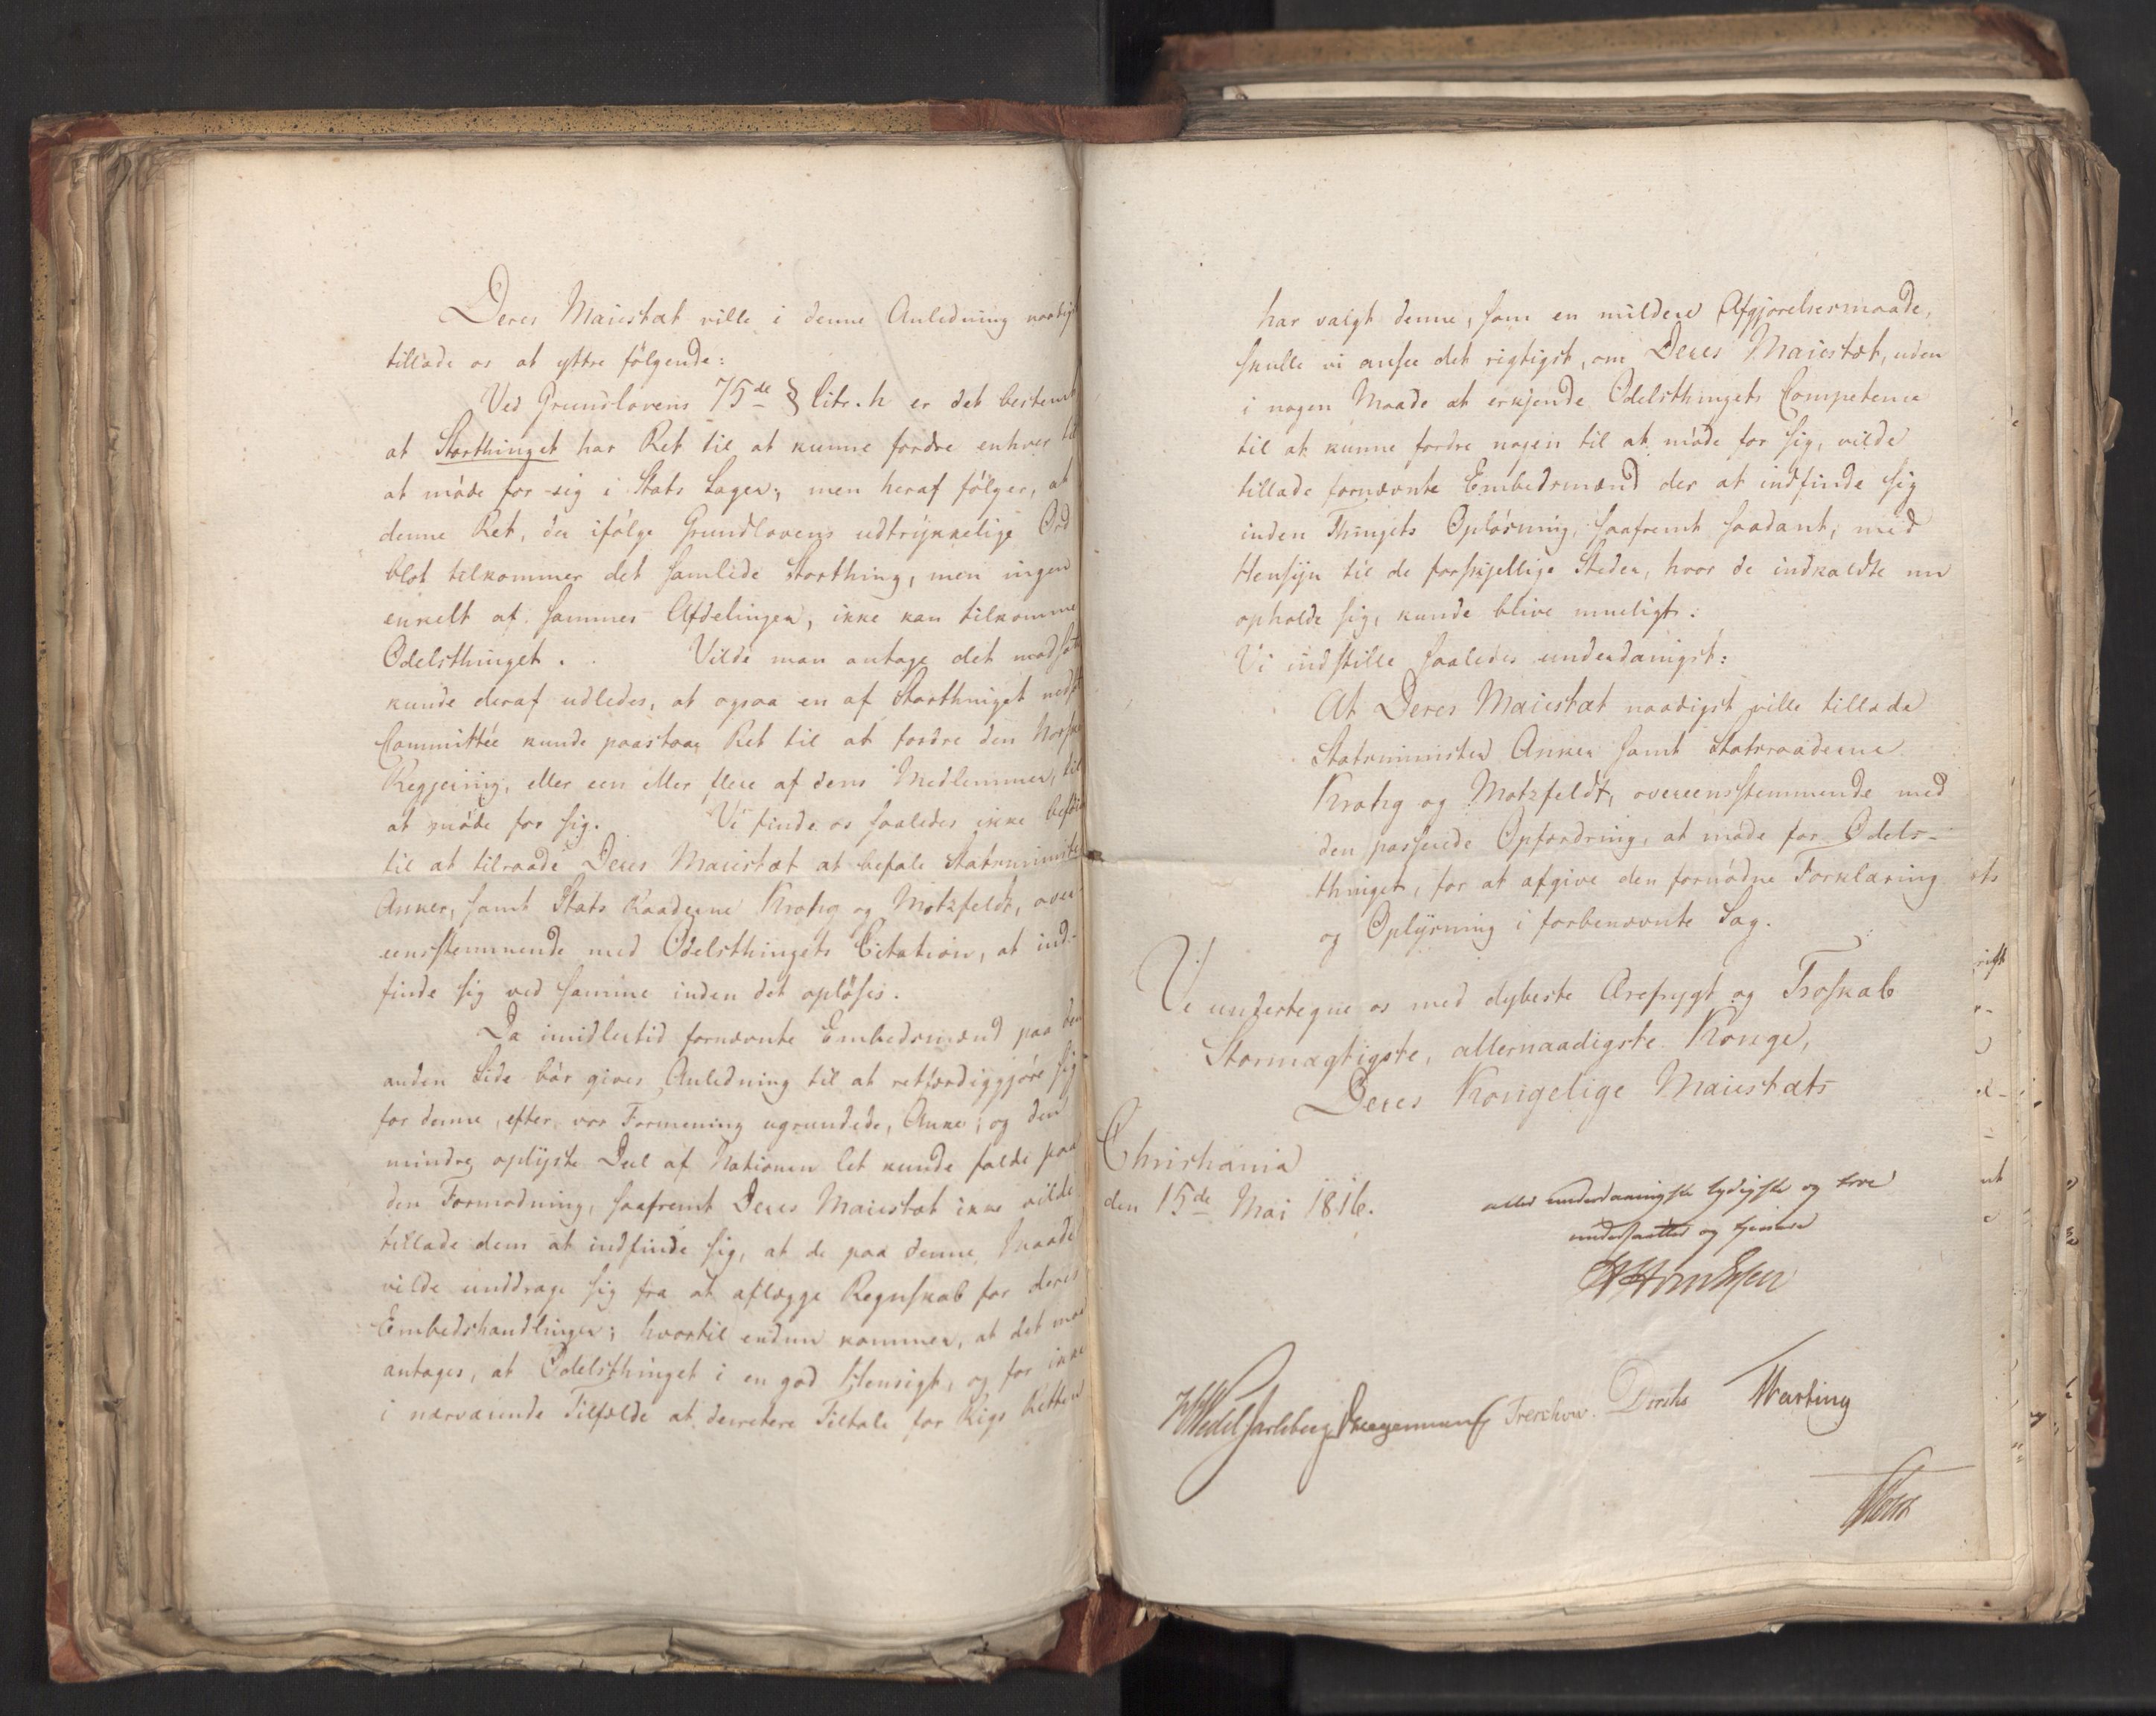 Deres Maiestæt ville i denne Anledning naadigst
tillade os at yttre følgende:
Ved Grundlovens 75de § litr. h er det bestemt
at Storthinget har Ret til at kunne fordre enhver til
at møde for sig i Stats Sager; men heraf følger, at
denne Ret, der ifølge Grundlovens udtrykkelige Ord
blot tilkommer det samlede Storthing, men ingen
enkelt af sammes Afdelinger, ikke kan tilkomme
Odelsthinget. Vilde man antage det modsatte
kunde deraf udledes, at ogsaa en af Storthinget nedsat
Committée kunde paastaae Ret til at fordre den Norske
Regjering, eller een eller flere af dens Medlemmer, til
at møde for sig. Vi finde os saaledes ikke beføiede
til at tilraade Deres Maiestæt at befale Statsminister
Anker, samt Stats Raaderne Krohg og Motzfeldt, over-
eensstemmende med Odelsthingets Citation, at ind-
finde sig ved samme inden det opløses.
Da imidlertid fornævnte Embedsmænd paa den
anden Side bør gives Anledning til at retfærdiggjøre sig
for denne, efter vor Formening ugrundede, Anke; og den
mindre oplyste Deel af Nationen let kunde falde paa
den Formodning, saafremt Deres Maiestæt ikke vilde
tillade dem at indfinde sig, at de paa denne Maade
vilde unddrage sig fra at aflægge Regnskab for deres
Embedshandlinger; hvortil endnu kommer, at det maa
antages, at Odelsthinget i en god Hensigt, og for ikke
i nærværende Tilfælde at decretere Tiltale for Rigs Retten
har valgt denne, som en mildere Afgjørelsesmaade,
skulle vi ansee det rigtigst, om Deres Maiestæt, uden
i nogen Maade at erkjende Odelsthingets Competence
til at kunne fordre nogen til at møde for sig, vilde
tillade fornævnte Embedsmænd der at indfinde sig
inden Thingets Opløsning, saafremt saadant, med
Hensyn til de forskjellige Steder, hvor de indkaldte nu
opholde sig, kunde blive mueligt.
Vi indstille saaledes underdanigst:
At Deres Maiestæt naadigst ville tillade
Statsminister Anker samt Statsraaderne
Krohg og Motzfeldt, overeensstemmende med
den passerede Opfordring, at møde for Odels-
thinget, for at afgive den fornødne Forklaring
og Oplysning i forbenævnte Sag.
Vi undertegne os med dybeste Ærefrygt og Troskab
Stormægtigste, allernaadigste Konge,
Deres Kongelige Maiestæts
Christiania
den 15de Mai 1816.
aller underdaanigste lydigste og troe
undersaatter og tjenere
HHvonEssen
HWedelJarlsberg Hegermann Treschow. Diriks Warting